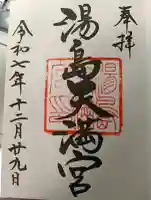 奉拝
湯島天満宮
令和七年十二月廿九日